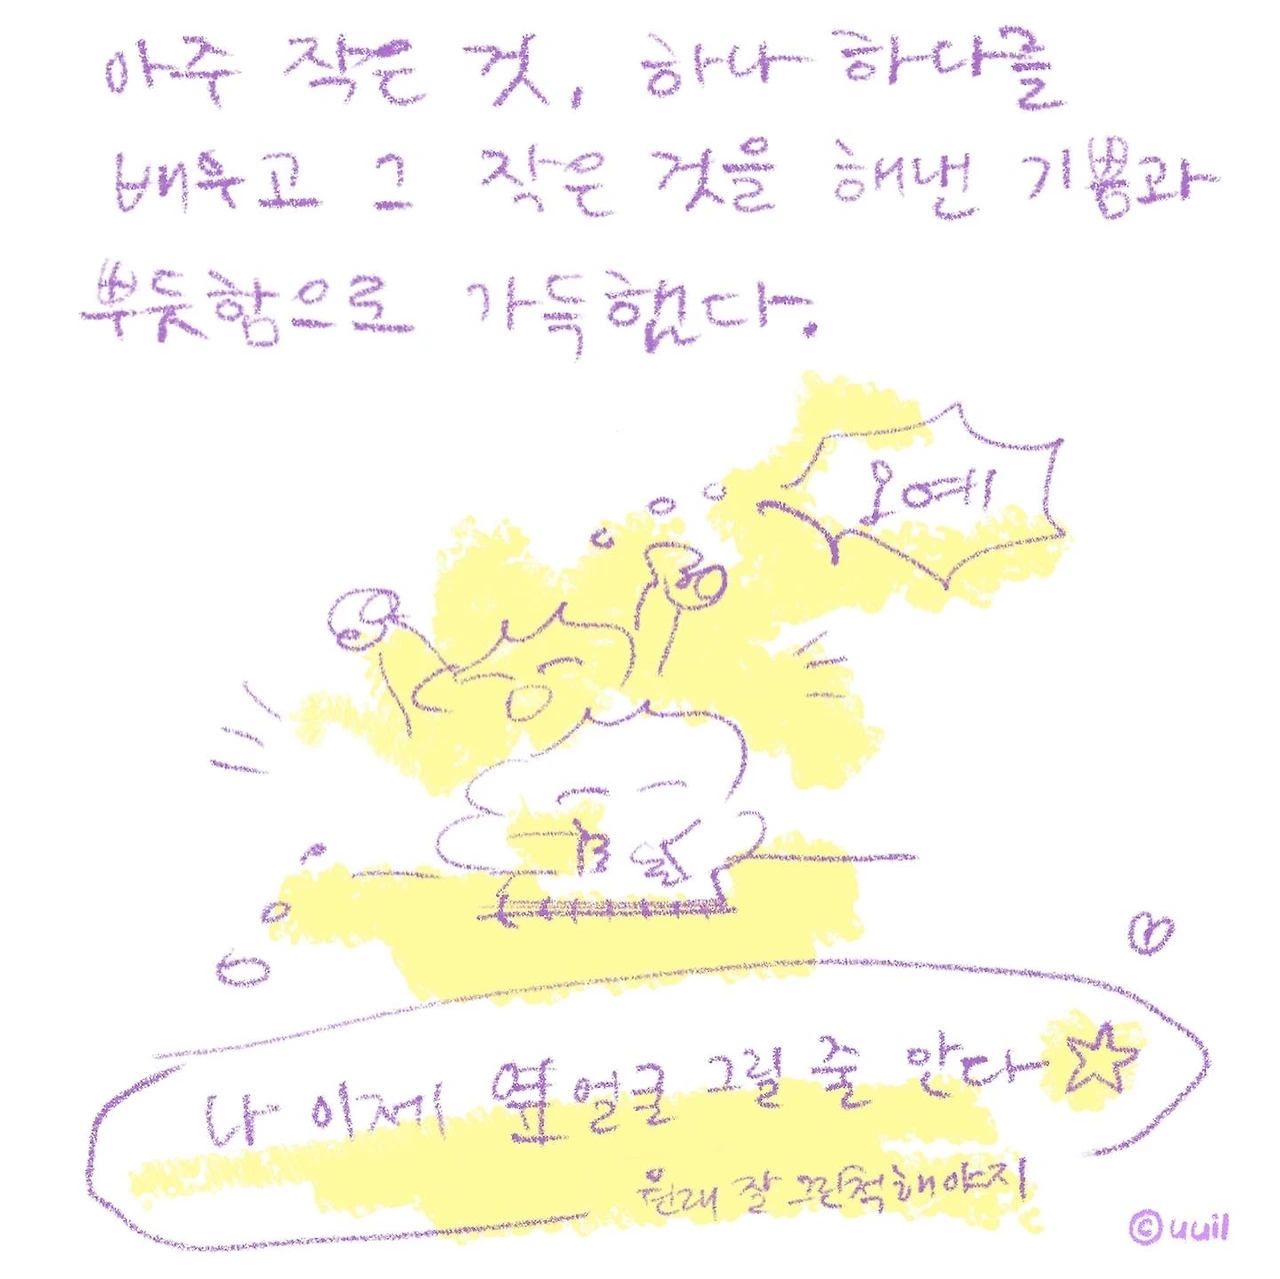 아주 작은 것, 하나 하나를
배우고 그 작은 것을 해낸 기쁨과
뿌듯함으로 가득했다.
오예
나 이제 옆얼굴 그릴 줄 안다
원래 잘 그린척해야지
© uuil